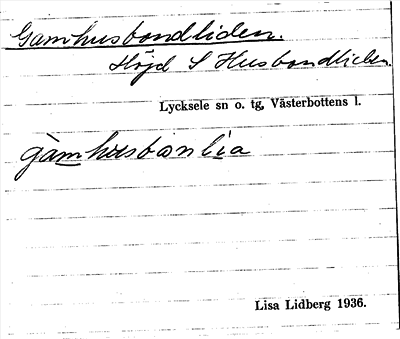 Gamhusbondliden.
Höjd S Husbondliden.
Lycksele sn o. tg, Västerbottens l.
gàmhusbonlia
Lisa Lidberg 1936.